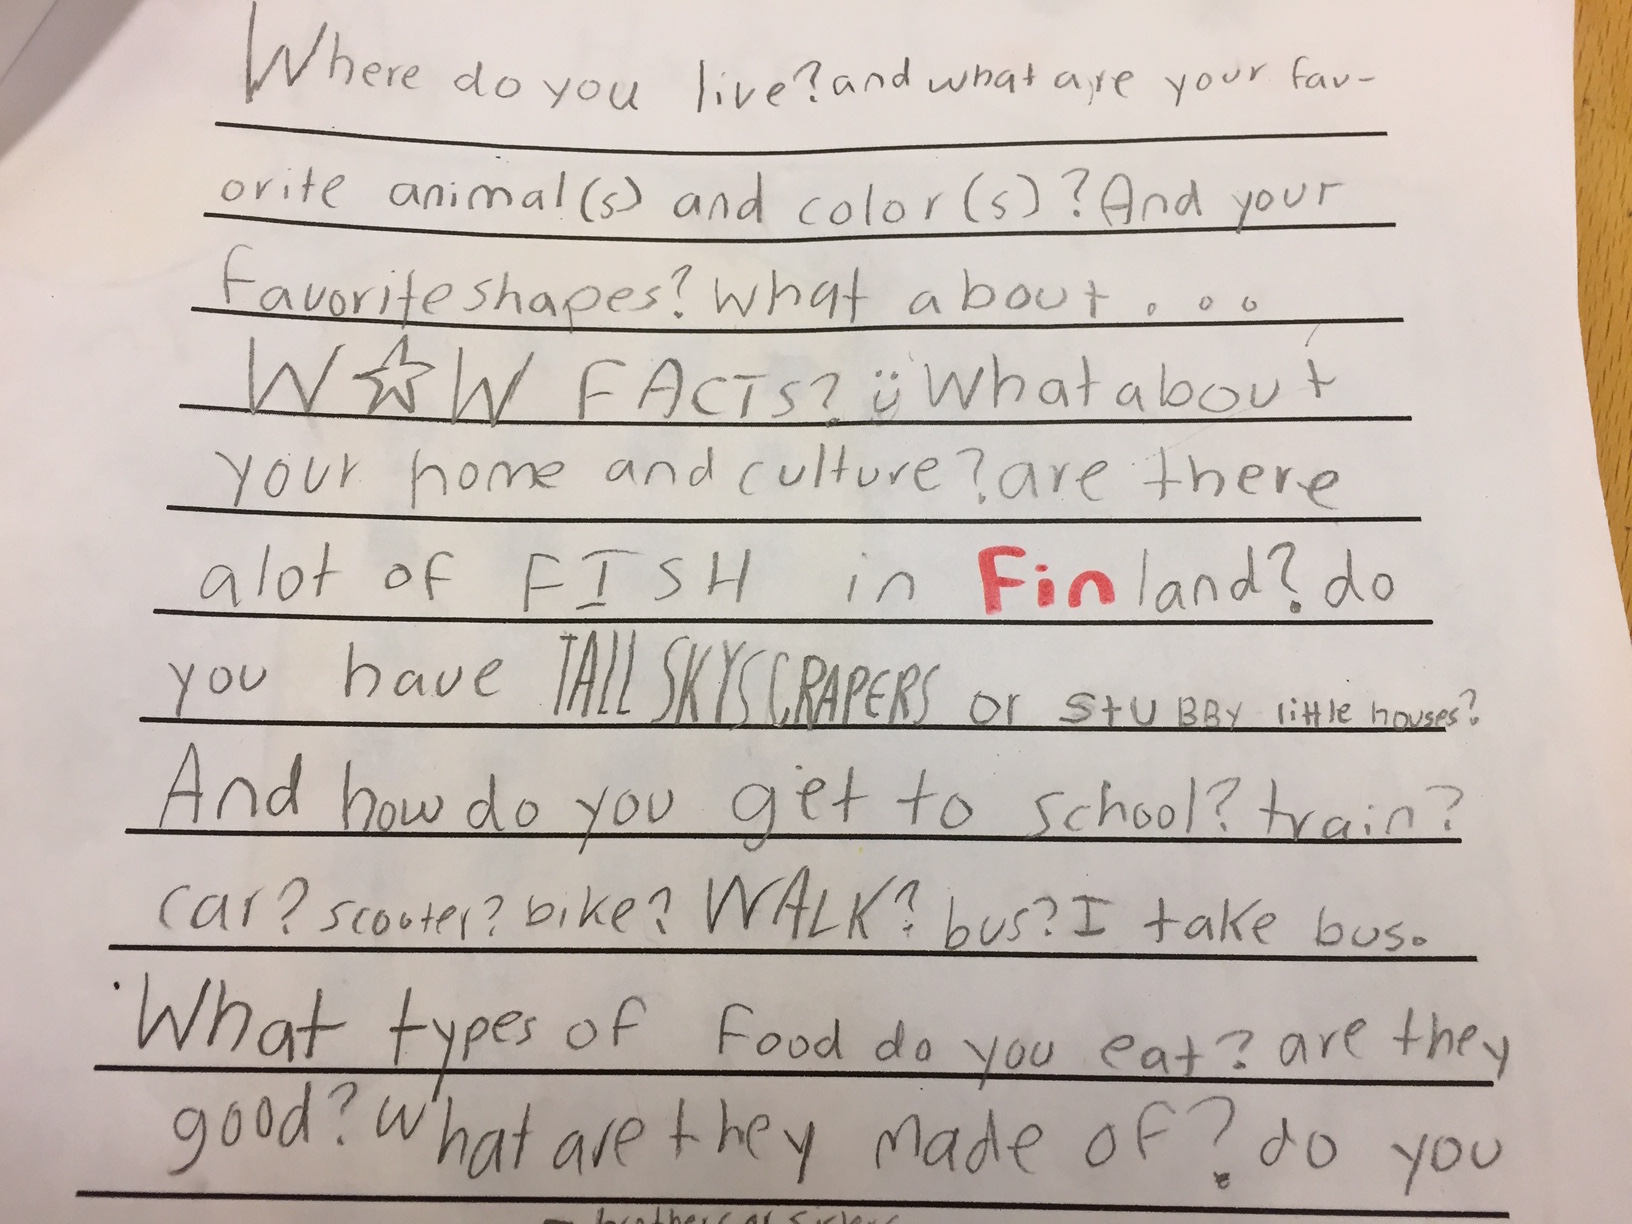 Where do you live? and what are your fav-
orite animal(s) and color(s)? And your
favorite shapes? what about....
W☆W FACTS? ü What about
your home and culture? are there
alot of FISH in Finland? do
you have TALL SKYSCRAPERS or StUBBY little houses?
And how do you get to school? train?
car? scooter? bike? WALK? bus? I take bus.
What types of food do you eat? are they
good? What are they made of? do you
brothers or sisters